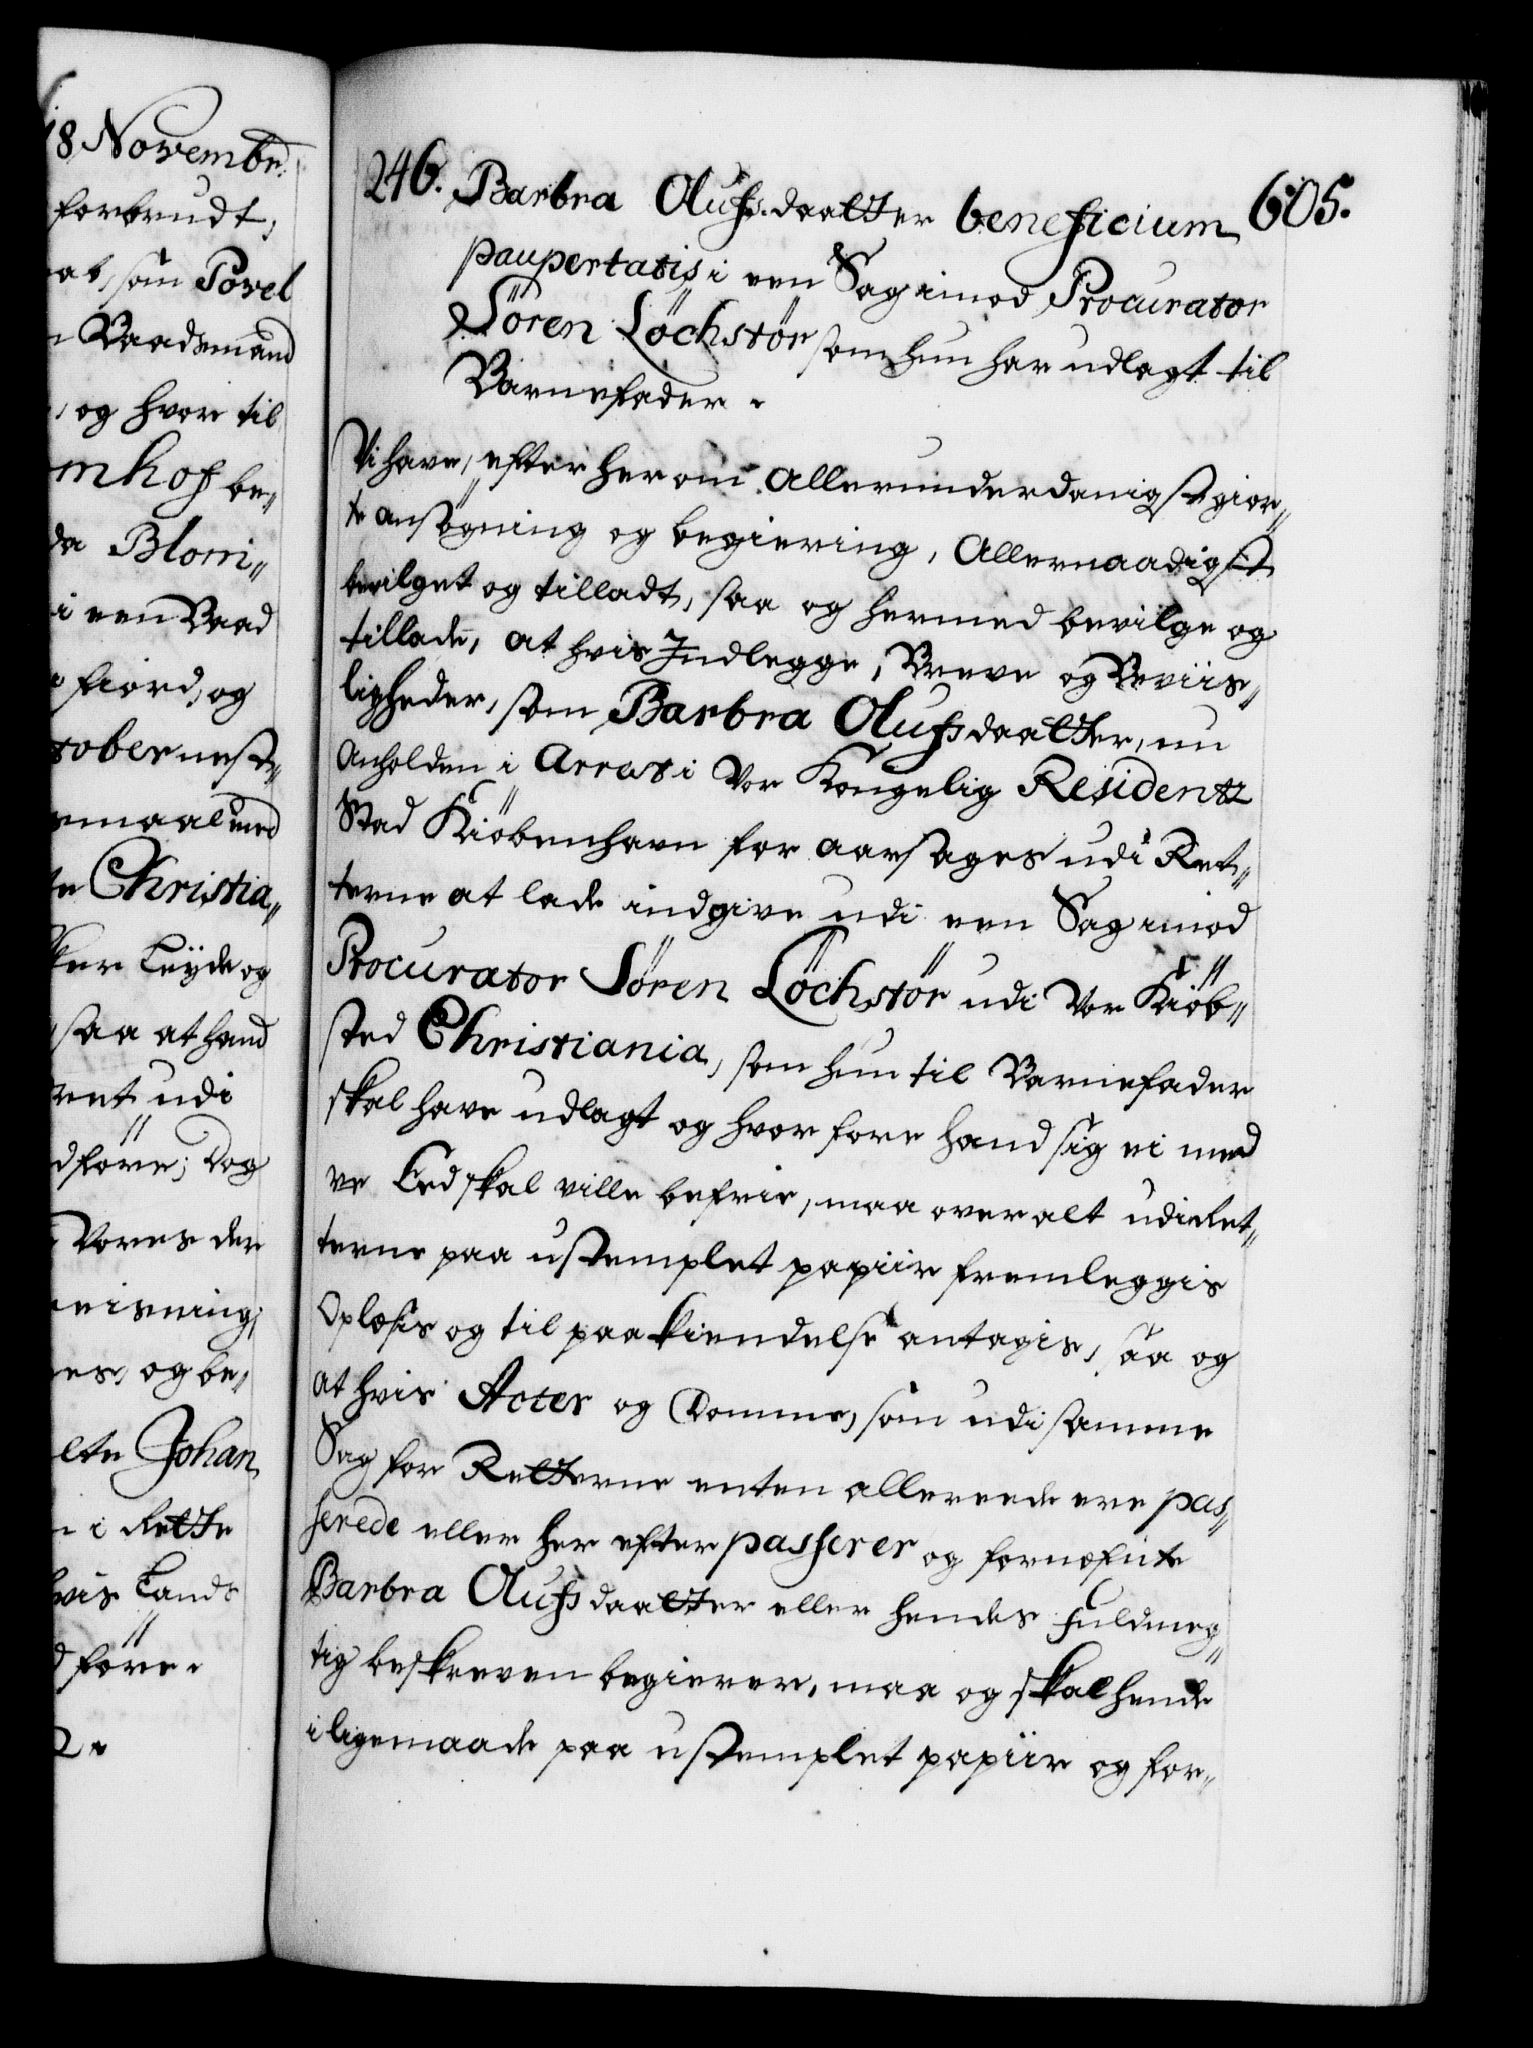 18 Novembr.
forbrudt,
som Povel
Raadsmand
og hvor til
mhof be-
da Blom-
i een Baad
fiord, og
tober nest-
maal med
te Christia-
Leyde og
saa at hand
ret udi
dføre; Dog
Vores der
viisning,
es, og be-
elte Johan
i Rette
hvis Lands
d føre.
2.
605.
246. Barbra Olufsdaatter beneficium
paupertatis i een Sag imod Procurator
Sören Löchstör som hun har udlagt til
Barnefader.
Vi have, efter herom allerunderdanigst gior-
te ansøgning og begiering, Allernaadigst
bevilget og tilladt, saa og hermed bevilge og
tillade, at hvis Indlegge, Breve og Beviis-
ligheder, som Barbra Olufsdaatter, nu
Anholden i Arrest i Vor Kongelig Residentz
Stad Kiöbenhavn for aarsages udi Ret-
terne at lade indgive udi een Sag imod
Procurator Sören Löchstör udi Vor Kiöb-
sted Christiania, som hun til Barnefader
skal have udlagt og hvor fore hand sig ei med
Eed skal ville befrie, maa over alt udi Ret-
terne paa ustemplet papiir fremleggis
Oplæsis og til paakiendelse antagis, saa og
at hvis Acter og Domme, som udi samme
Sag for Retterne enten allereede ere pas-
serede eller her efter passerer og fornefnte
Barbra Olufsdaatter eller hendes Fuldmeg-
tig beskreven begierer, maa og skal hende
i ligemaade paa ustemplet papiir og for-